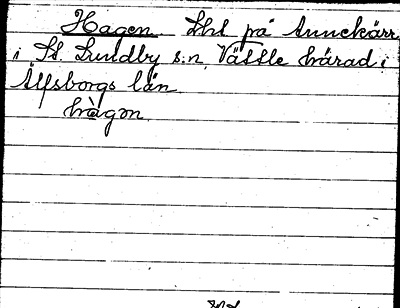 Hagen Lht på Annekärr
i St. Lundby s:n, Vättle härad i
Älfsborgs län
hàgən